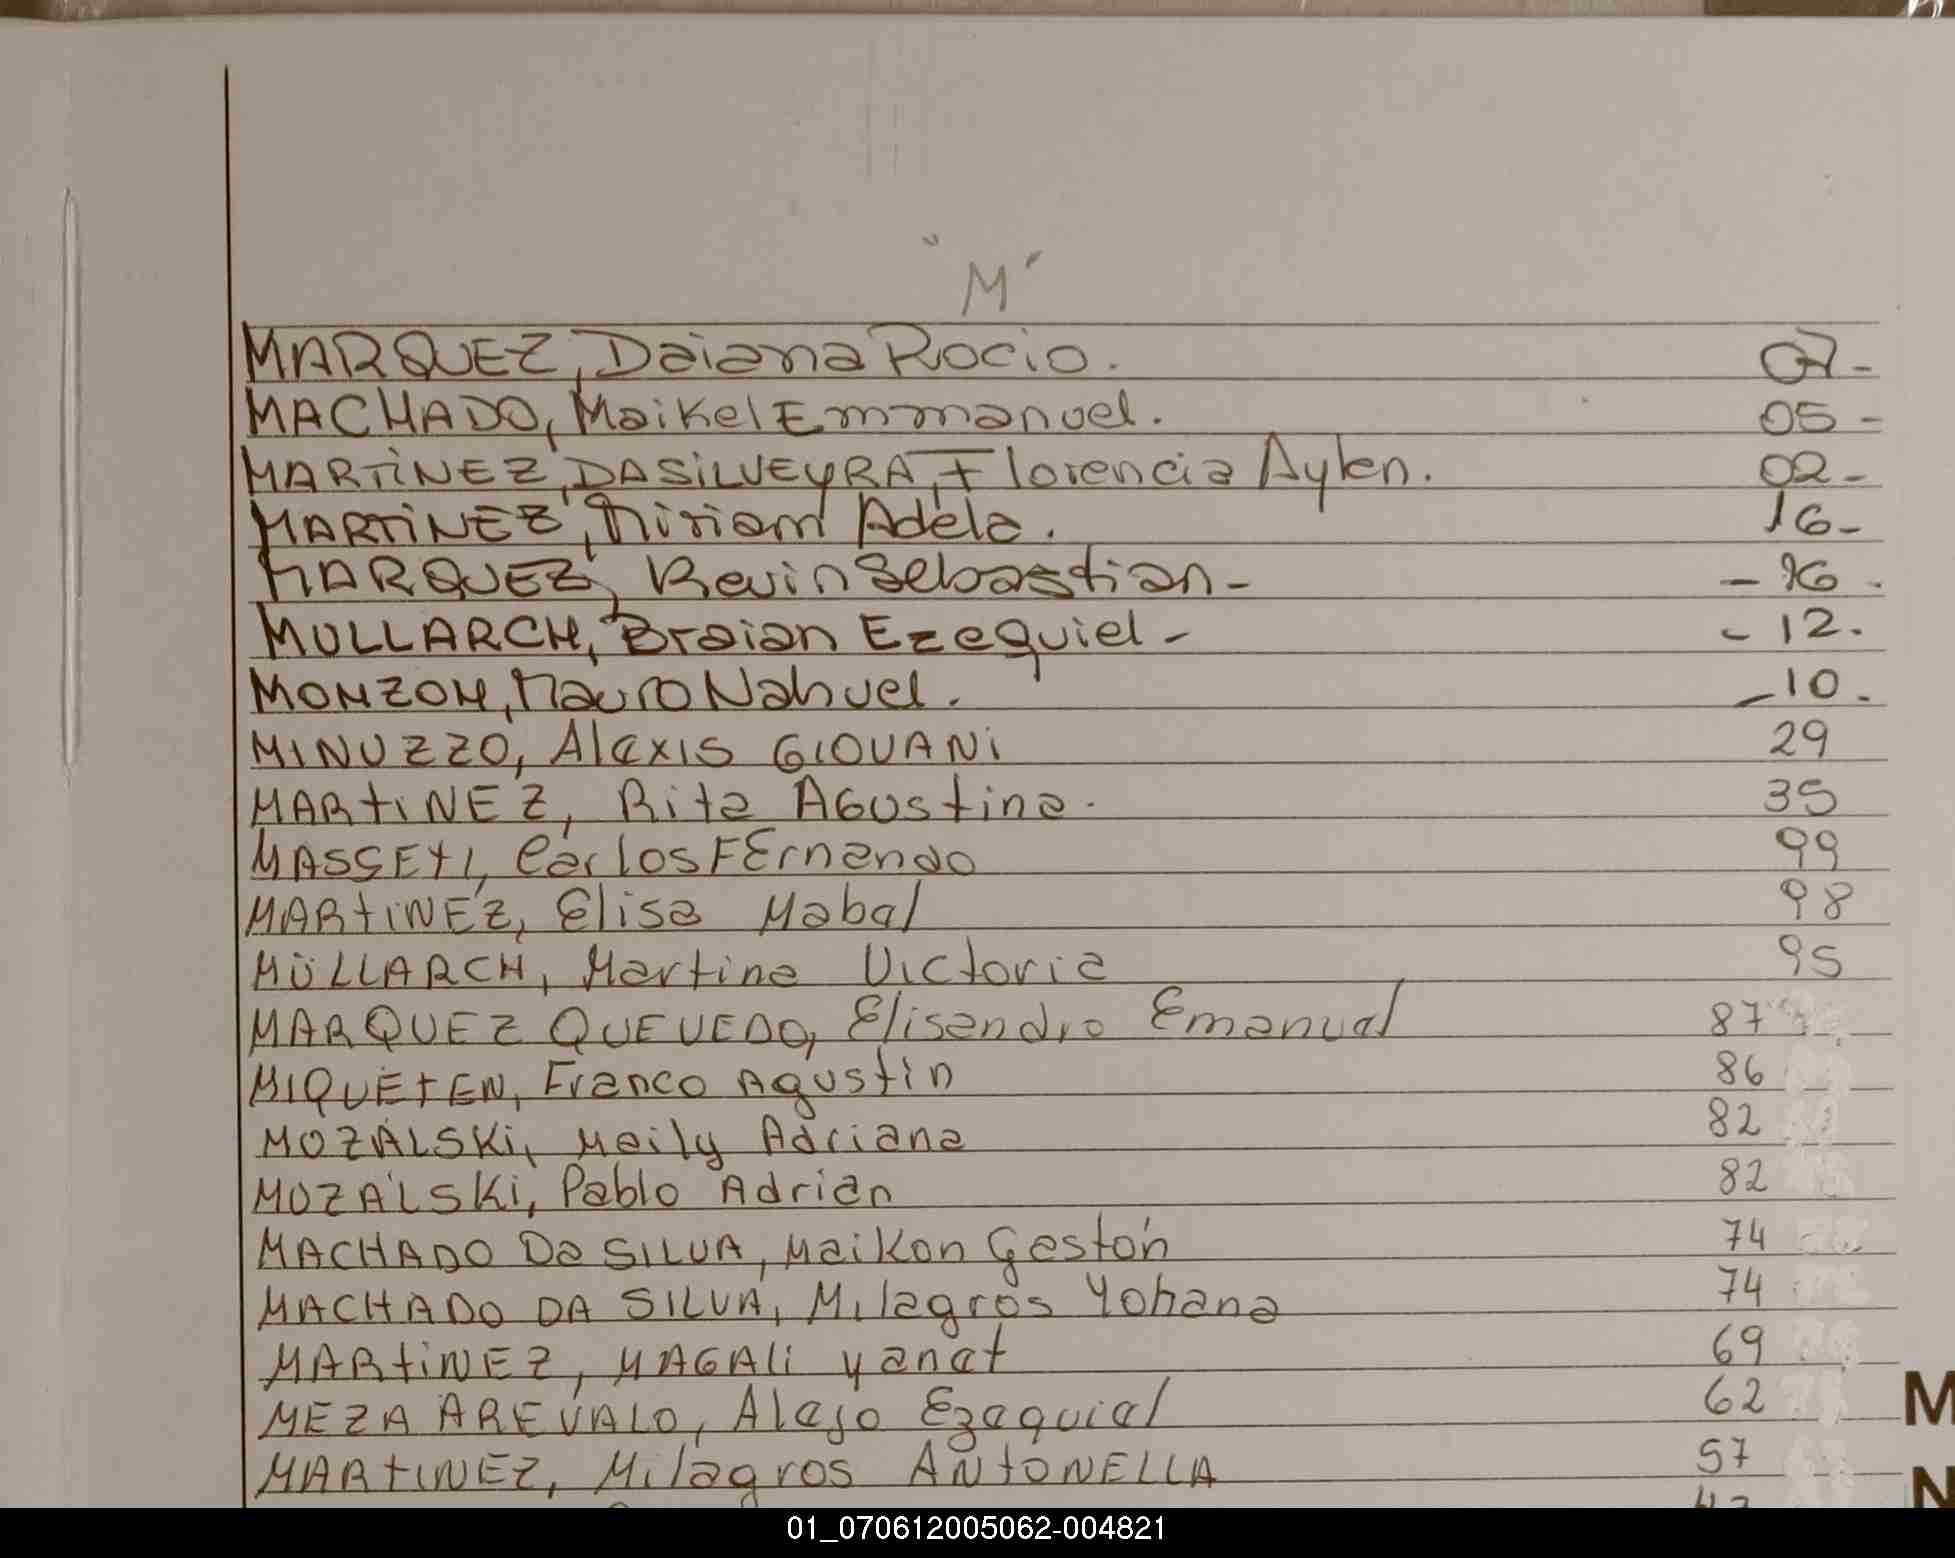 "M"
MARQUEZ, Daiana Rocio. 07-
MACHADO, Maikel Emmanuel. 05-
MARTINEZ, DASILVEYRA, Florencia Aylen. 02-
MARTINEZ, Miriam Adela. 16-
MARQUEZ, Kevin Sebastian- -16.
MULLARCH, Braian Ezequiel- -12.
MONZON, Mauro Nahuel. -10.
MINUZZO, Alexis GIOVANi 29
MARtiNEZ, Rita AGUstina. 35
MASSEtI, Carlos FErnando 99
MARtiNEZ, Elisa Mabel 98
MÜLLARCH, Martina Victoria 95
MARQUEZ QUEVEDO, Elisandro Emanuel 87
MIQUEtEN, Franco Agustin 86
MOZALSKi, Meily Adriana 82
MOZALSKi, Pablo Adrian 82
MACHADO Da SILVA, Maikon Gastón 74
MACHADO DA SILVA, Milagros Yohana 74
MARtiNEZ, MAGALi yanet 69
MEZA AREVALO, Alejo Ezequiel 62
MARtINEZ, Milagros ANtONELLA 57
M
N
01_070612005062-004821